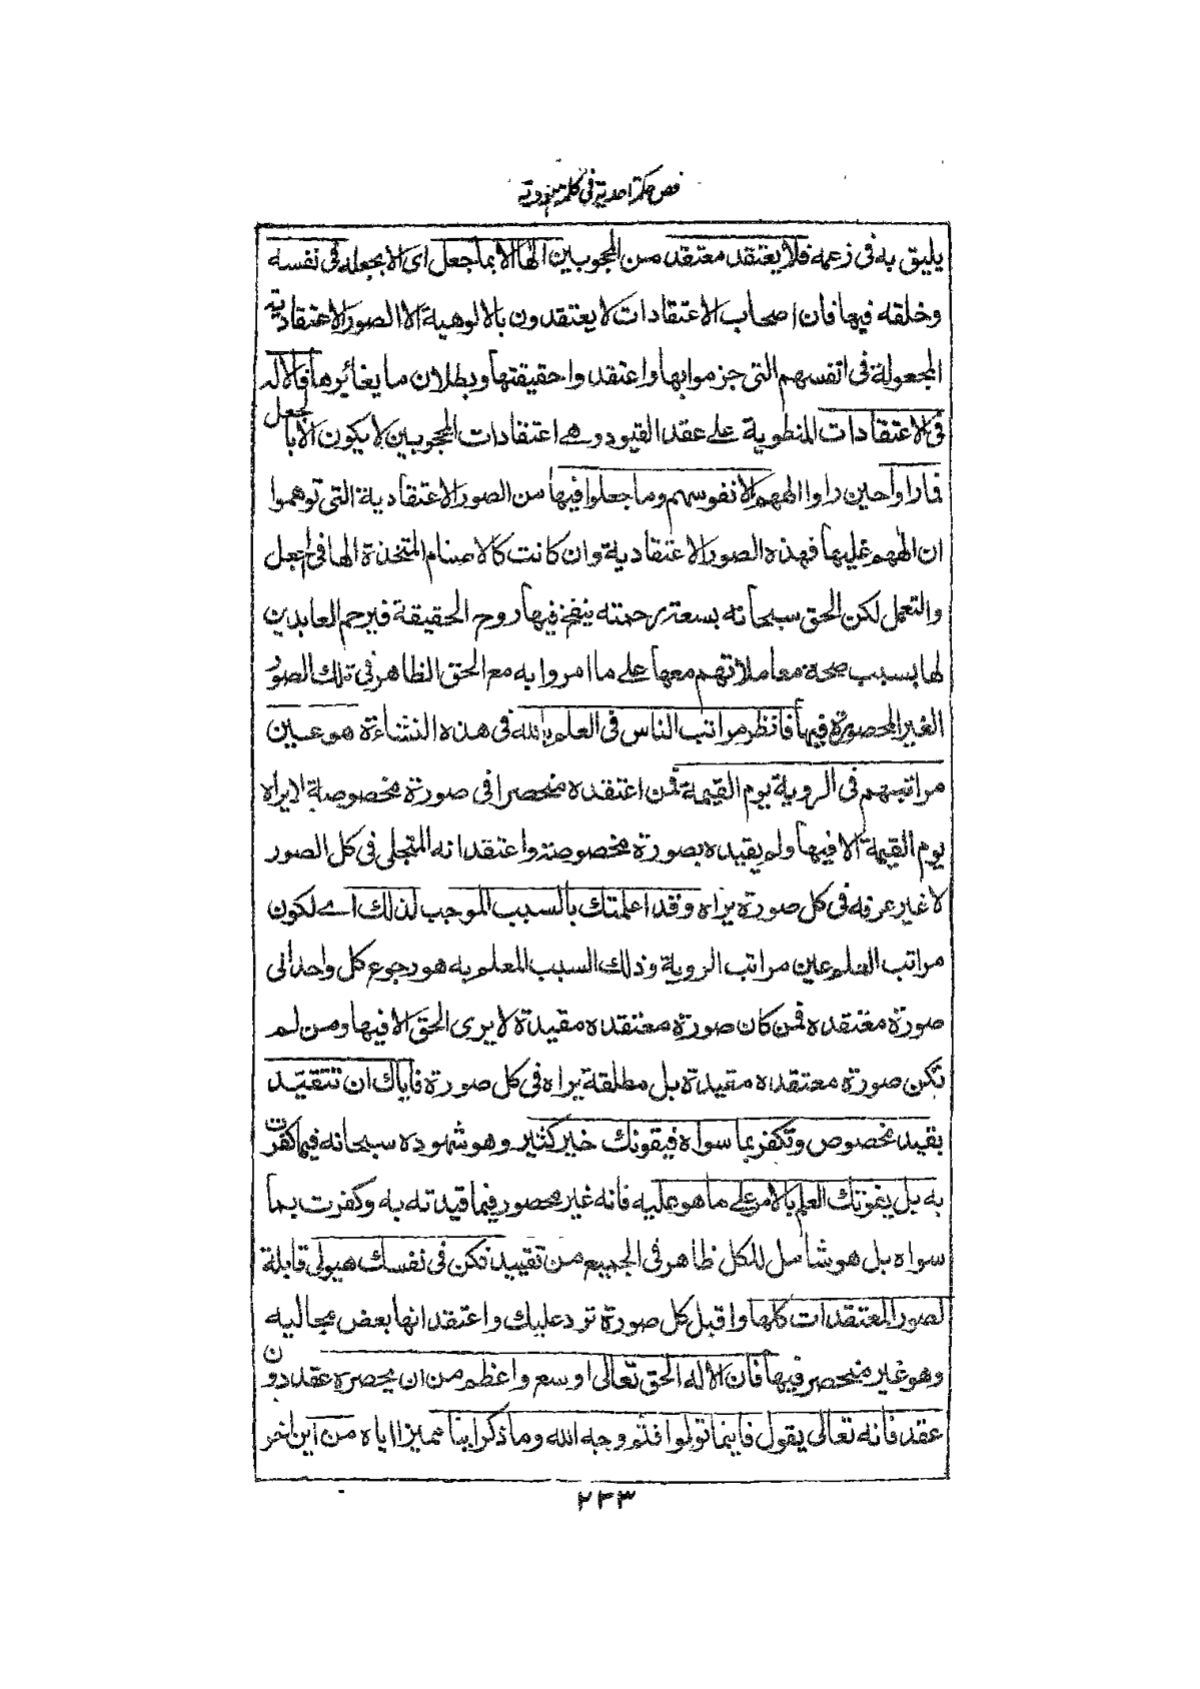 فص حكمة احدية فى كلمة هودية
يليق به فى زعمه فلا يعتقد معتقد من المحجوبين الها الا بما جعل اى الا بجعله فى نفسه
وخلقه فيها فان اصحاب الاعتقادات لا يعتقدون بالالوهية الا الصور الاعتقادية
المجعولة فى انفسهم التى جزموا بها واعتقدوا حقيقتها وبطلان ما يغائرها فالاله
فى الاعتقادات المنطوية على عقد القيود وهى اعتقادات المحجوبين لا يكون الا بالجعل
فما راوا حين راوا الههم الا نفوسهم وما جعلوا فيها من الصور الاعتقادية التى توهموا
ان الههم عليها فهذه الصور الاعتقادية وان كانت كالاصنام المتخذة الها فى الجعل
والتعمل لكن الحق سبحانه بسعة رحمته ينفخ فيها روح الحقيقة فيرحم العابدين
لها بسبب صحة معاملاتهم معها على ما امروا به مع الحق الظاهر فى تلك الصور
الغير المحصورة فيها فانظر مراتب الناس فى العلم بالله فى هذه النشاءة هو عين
مراتبهم فى الروية يوم القيمة فمن اعتقده منحصرا فى صورة مخصوصة لا يراه
يوم القيمة الا فيها ولم يقيده بصورة مخصوصة واعتقد انه المتجلى فى كل الصور
لا غير عرفه فى كل صورة يراه وقد اعلمتك بالسبب الموجب لذلك اے لكون
مراتب العلم عين مراتب الروية وذلك السبب المعلم به هو رجوع كل واحد الى
صورة معتقده فمن كان صورة معتقده مقيدة لا يرى الحق الا فيها ومن لم
تكن صورة معتقده مقيدة بل مطلقة يراه فى كل صورة فاياك ان تتقيد
بقيد مخصوص وتكفر بما سواه فيفوتك خير كثير وهو شهوده سبحانه فيما كفرت
به بل يفوتك العلم بالامر على ما هو عليه فانه غير محصور فيما قيدته به وكفرت بما
سواه بل هو شامل للكل ظاهر فى الجميع من تقييد فكن فى نفسك هيولى قابلة
لصور المعتقدات كلها واقبل كل صورة ترد عليك واعتقد انها بعض مجاليه
وهو غير منحصر فيها فان الاله الحق تعالى اوسع واعظم من ان يحصره عقد دون
عقد فانه تعالى يقول فاينما تولوا فثم وجه الله وما ذكر اينا مميزا اياه من اين اخر
٢٣٣